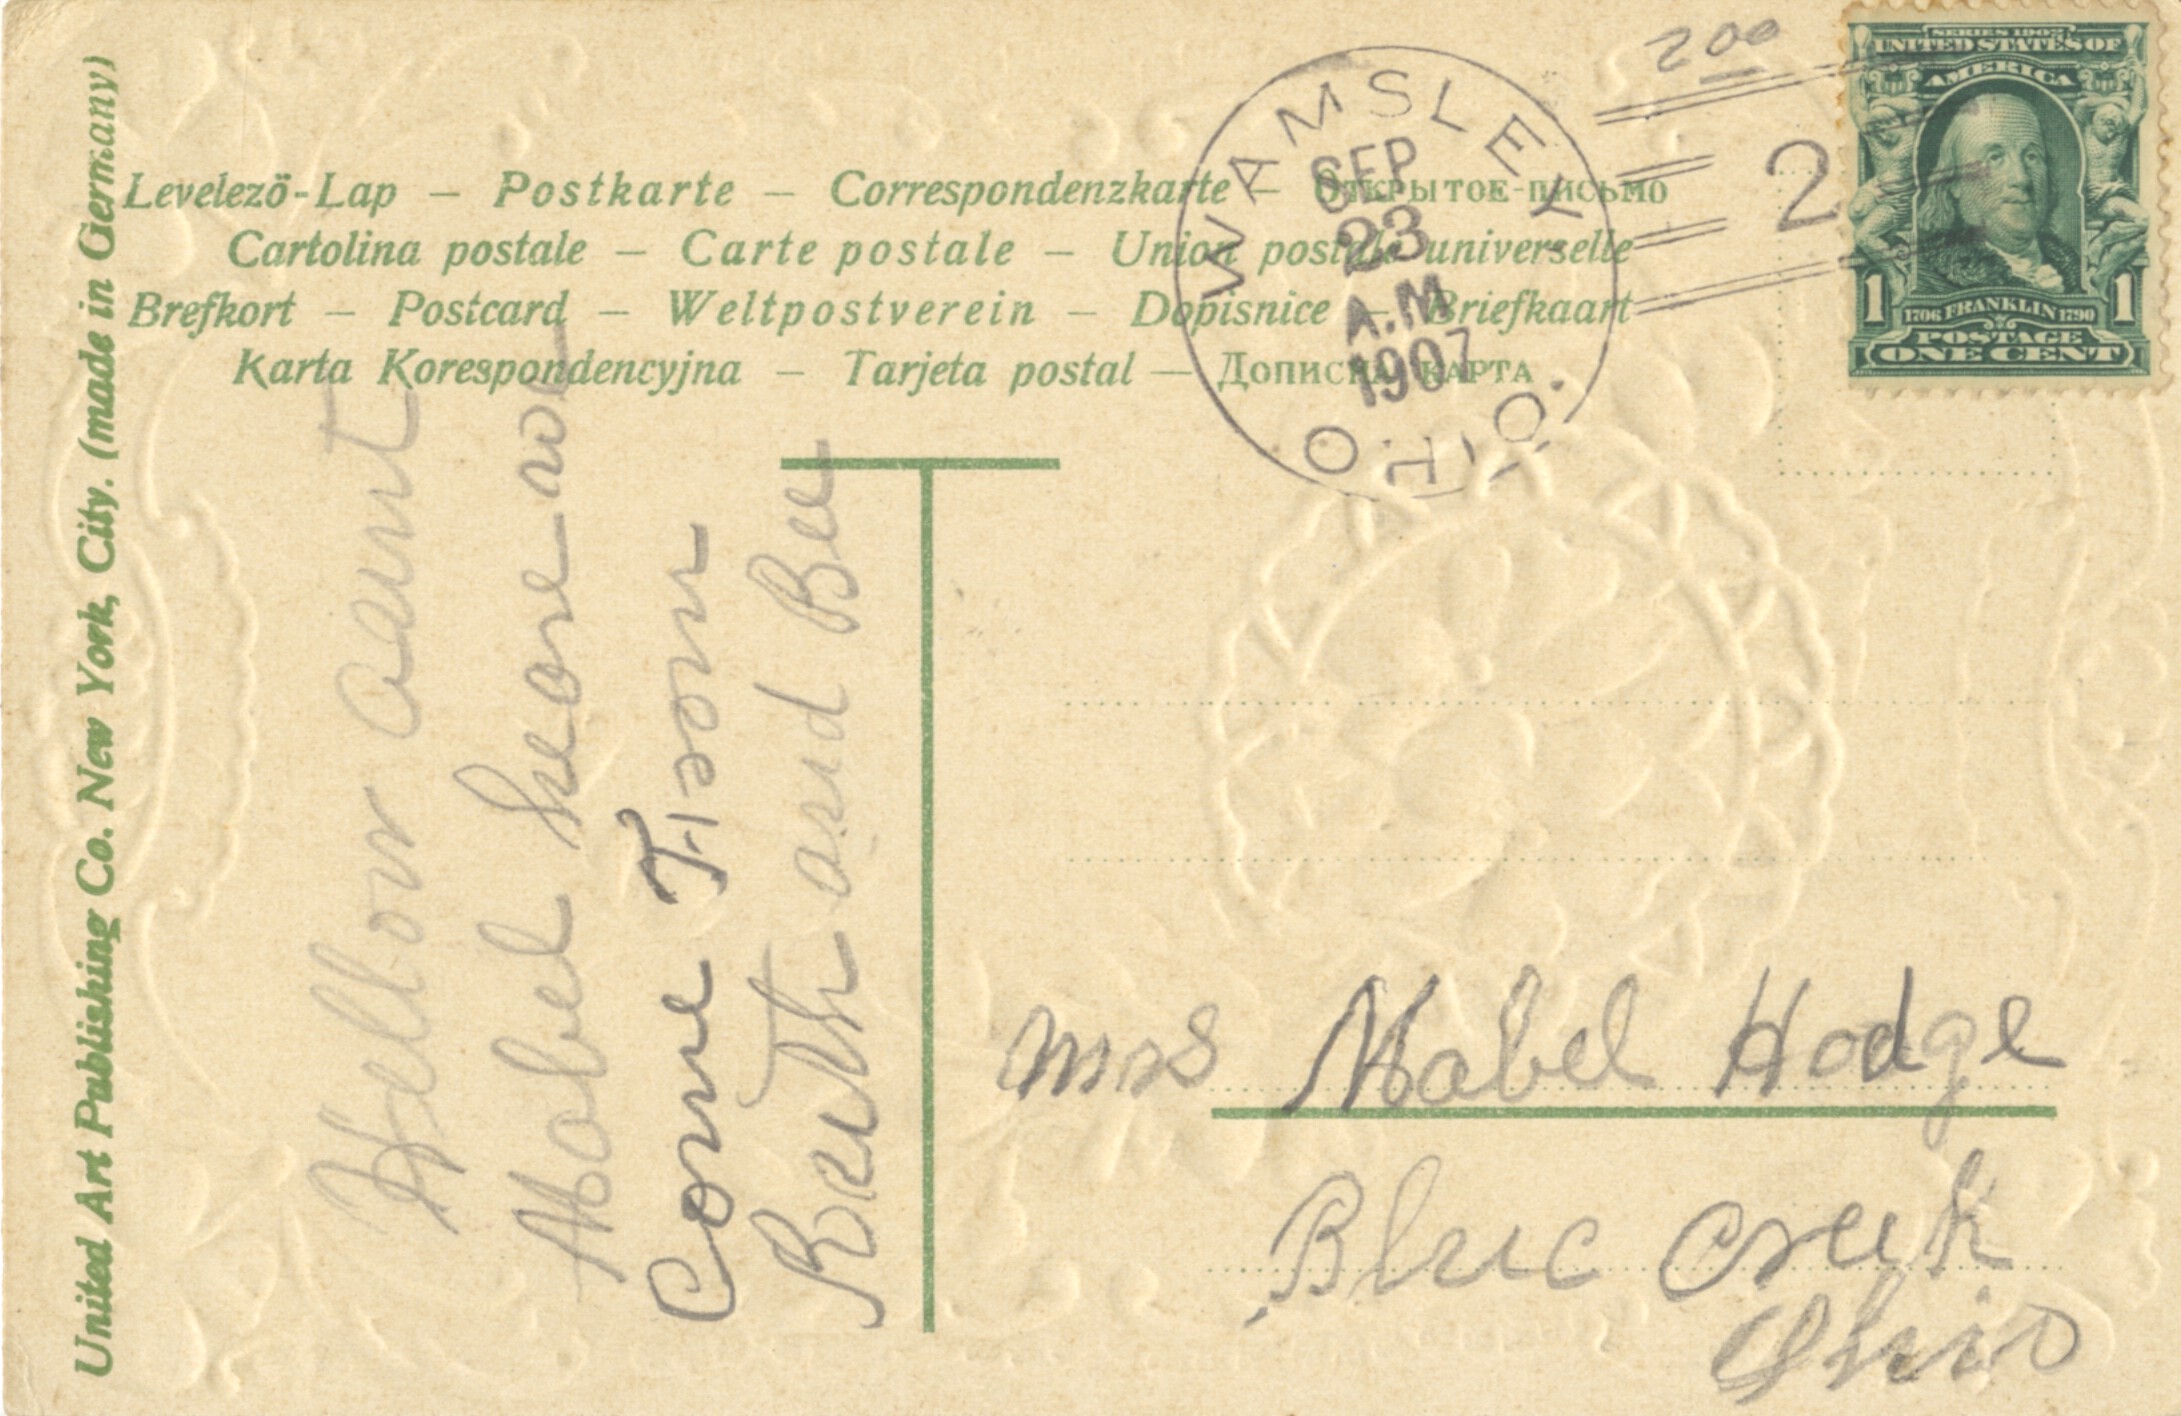 United Art Publishing Co. New York, City. (made in Germany)
Levelezö-Lap – Postkarte – Correspondenzkarte – Открытое-письмо
Cartolina postale – Carte postale – Union postale universelle
Brefkort – Postcard – Weltpostverein – Dopisnice – Briefkaart
Karta Korespondencyjna – Tarjeta postal – Дописна карта
WAMSLEY
SEP
23
A.M.
1907
OHIO.
2
200
SERIES 1902
UNITED STATES OF
AMERICA
1 1706 FRANKLIN 1790 1
POSTAGE
ONE CENT
Hellow aunt
Mabel
Come From
Ruth and Bee
mrs Mabel Hodge
Blue Creek
Ohio